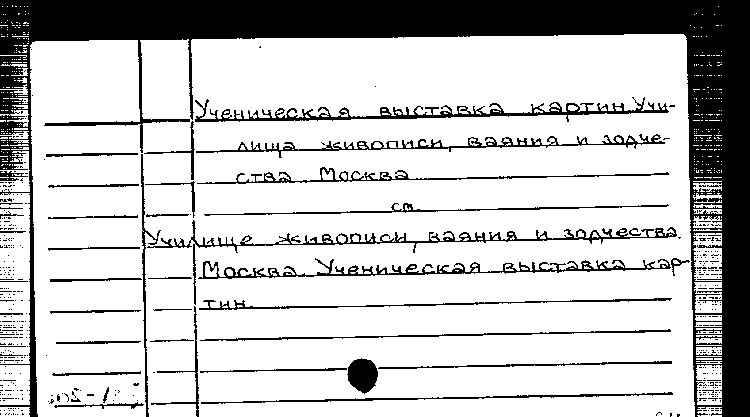 Ученическая выставка картин Учи-
лища живописи, ваяния и зодче-
ства Москва
см.
Училище живописи, ваяния и зодчества.
Москва. Ученическая выставка кар-
тин.